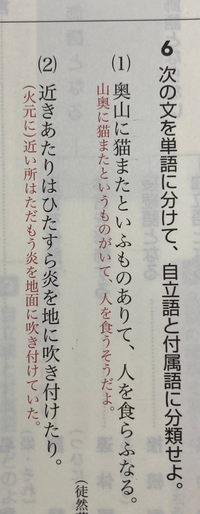 6 次の文を単語に分けて、自立語と付属語に分類せよ。
(1) 奥山に猫またといふものありて、人を食らふなる。
山奥に猫またというものがいて、人を食うそうだよ。
(2) 近きあたりはひたすら炎を地に吹き付けたり。
(火元に)近い所はただもう炎を地面に吹き付けていた。
(徒然